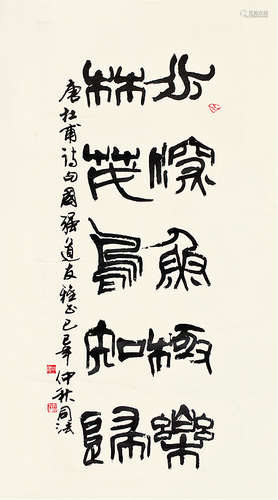 水深魚極樂
林茂鳥知歸
唐杜甫詩句國強道友雅正己巳年仲秋同法